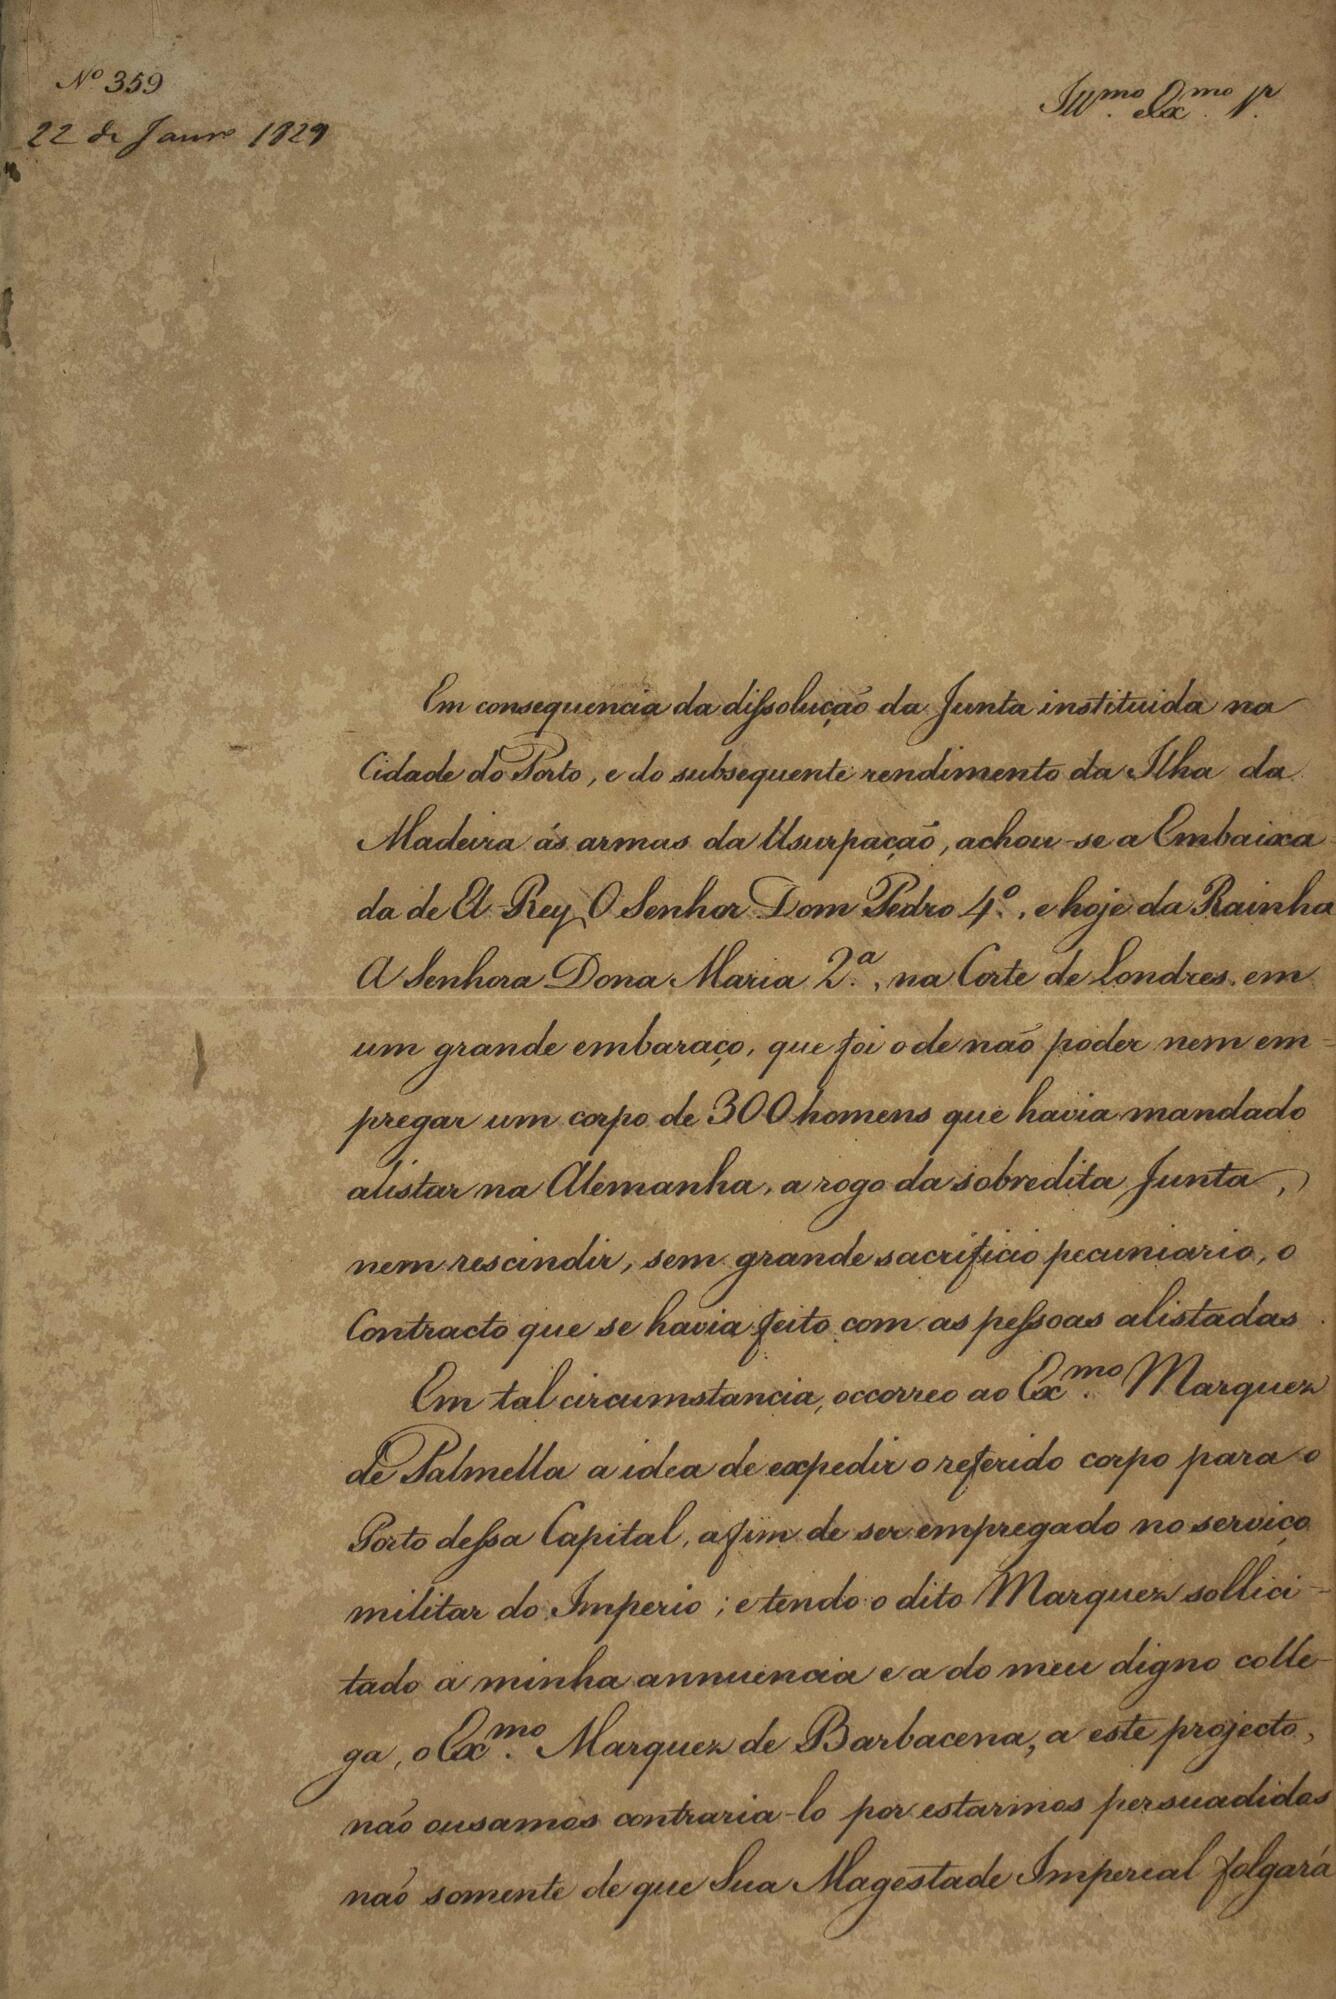 Nº 359
22 de Janrº 1829
Illmo. Exmo. Sr.
Em consequencia da dissolução da Junta instituida na
Cidade do Porto, e do subsequente rendimento da Ilha da
Madeira ás armas da Usurpação, achou-se a Embaixa
da de El-Rey O Senhor Dom Pedro 4º., e hoje da Rainha
A Senhora Dona Maria 2.ª, na Corte de Londres, em
um grande embaraço, que foi o de não poder nem em=
pregar um corpo de 300 homens que havia mandado
alistar na Alemanha, a rogo da sobredita Junta,
nem rescindir, sem grande sacrificio pecuniario, o
Contracto que se havia feito com as pessoas alistadas.
Em tal circumstancia, occorreo ao Exmo. Marquez
de Palmella a idea de expedir o referido corpo para o
Porto dessa Capital, afim de ser empregado no serviço
militar do Imperio; e tendo o dito Marquez sollici=
tado a minha annuencia e a do meu digno colle-
ga, o Exmo. Marquez de Barbacena, a este projecto,
não ousamos contraria-lo por estarmos persuadidos
não somente de que Sua Magestade Impereal folgará